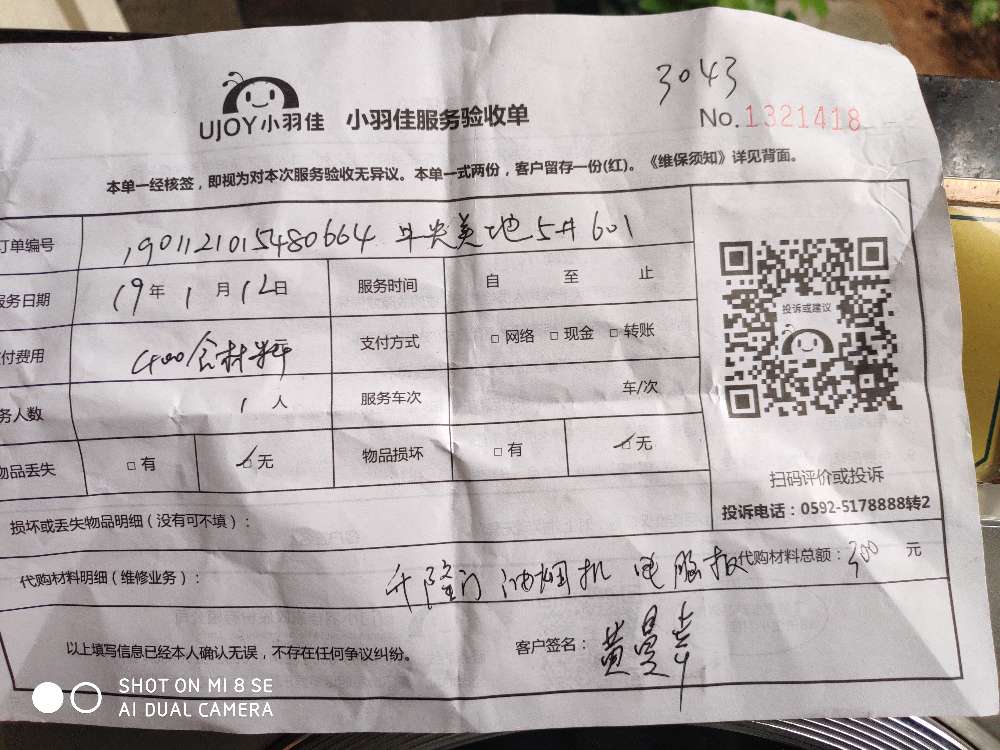 3043
UJOY小羽佳 小羽佳服务验收单
No.1321418
本单一经核签，即视为对本次服务验收无异议。本单一式两份，客户留存一份(红)。《维保须知》详见背面。
订单编号 1901121015480664 5# 601
服务日期 19年 1月 12日 服务时间 自 至 止
付费用 400含材料 支付方式 □网络 □现金 □转账
务人数 1人 服务车次 车/次
物品丢失 □有 □无 物品损坏 □有 □无
投诉或建议
扫码评价或投诉
投诉电话：0592-5178888转2
损坏或丢失物品明细（没有可不填）：
代购材料明细（维修业务）： 油烟机 电 板 代购材料总额：300 元
以上填写信息已经本人确认无误，不存在任何争议纠纷。 客户签名：黄
SHOT ON MI 8 SE
AI DUAL CAMERA